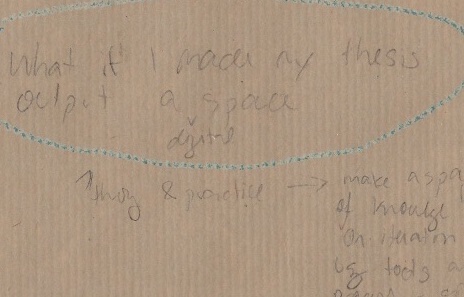 What if I made my thesis
output a space
digital
theory & practice → make a spa
of knowledge
on iteration
by tools a